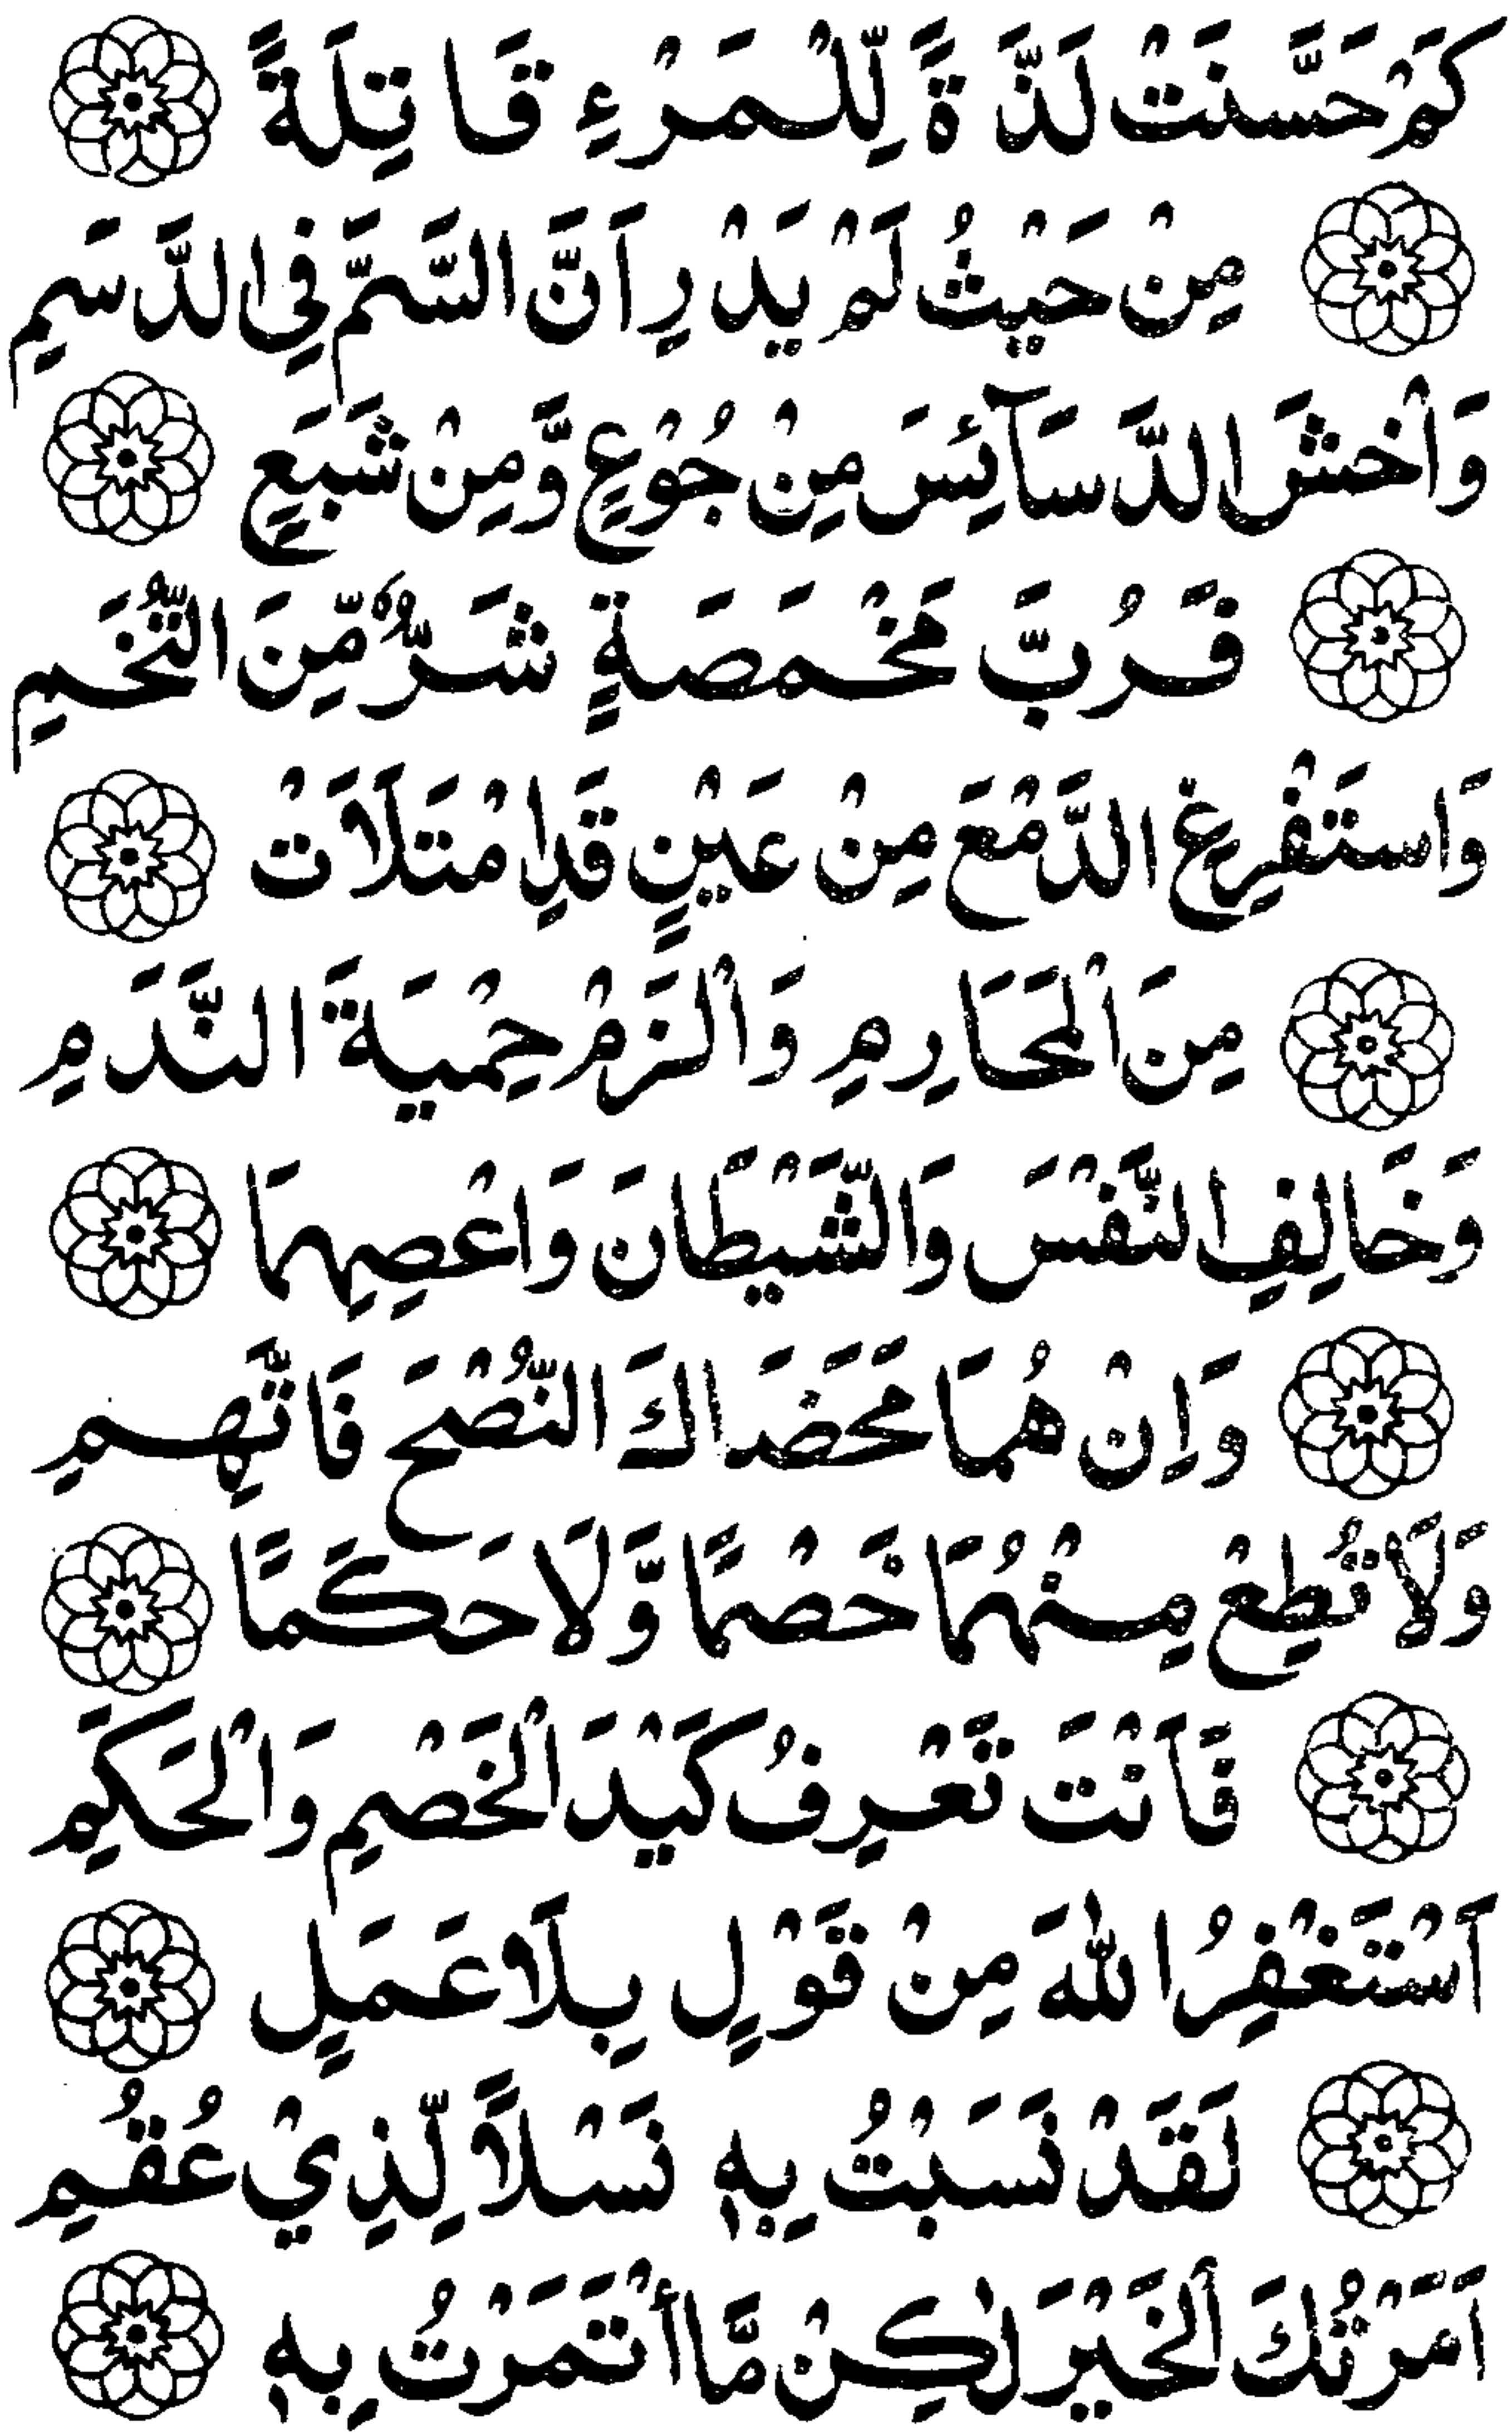 كَمْ حَسَّنَتْ لَذَّةً لِّلْمَرْءِ قَاتِلَةً
مِنْ حَيْثُ لَمْ يَدْرِ اَنَّ السَّمَّ فِي الدَّسَمِ
وَاخْشَ الدَّسَآئِسَ مِنْ جُوْعٍ وَّمِنْ شَبَعٍ
فَرُبَّ مَخْمَصَةٍ شَرٌّ مِّنَ التُّخَمِ
وَاسْتَفْرِغِ الدَّمْعَ مِنْ عَيْنٍ قَدِ امْتَلَاَتْ
مِنَ الْمَحَارِمِ وَالْزَمْ حِمْيَةَ النَّدَمِ
وَخَالِفِ النَّفْسَ وَالشَّيْطَانَ وَاعْصِهِمَا
وَاِنْ هُمَا مَحَضَاكَ النُّصْحَ فَاتَّهِمِ
وَلَا تُطِعْ مِنْهُمَا خَصْمًا وَّلَا حَكَمًا
فَاَنْتَ تَعْرِفُ كَيْدَ الْخَصْمِ وَالْحَكَمِ
اَسْتَغْفِرُ اللهَ مِنْ قَوْلٍ بِلَا عَمَلٍ
لَقَدْ نَسَبْتُ بِهٖ نَسْلًا لِّذِيْ عُقُمِ
اَمَرْتُكَ الْخَيْرَ لٰكِنْ مَّا أْتَمَرْتُ بِهٖ